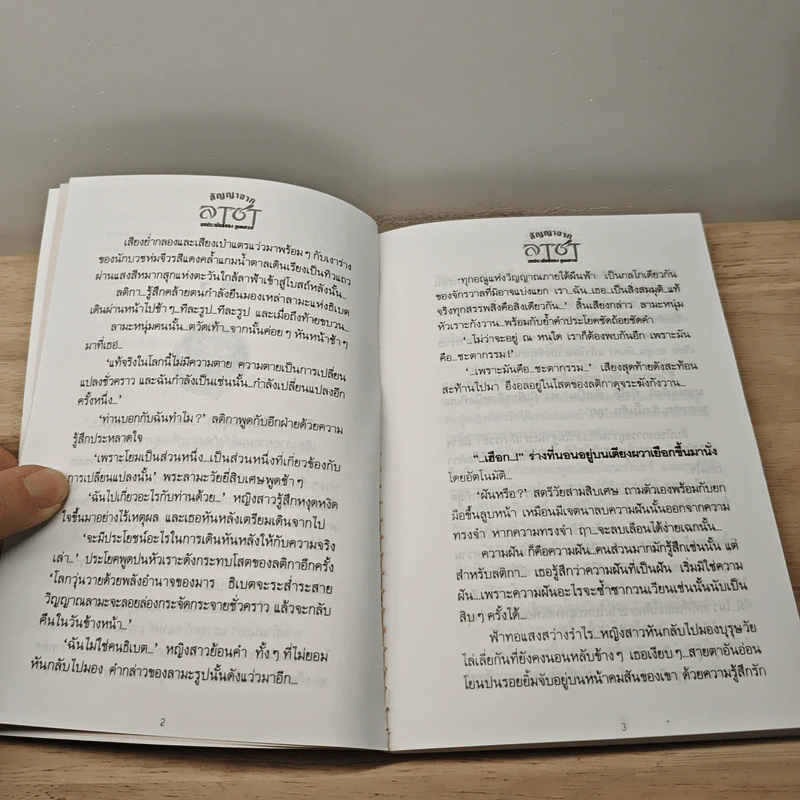 สัญญาจาก
ลาซา
เสียงย่ำกลองและเสียงเป่าแตรแว่วมาพร้อมๆ กับเงาร่าง
ของนักบวชห่มจีวรสีแดงคล้ำแกมน้ำตาลเดินเรียงเป็นทิวแถว
ผ่านแสงสีหมากสุกแห่งตะวันใกล้ลาฟ้าเข้าสู่โบสถ์หลังนั้น...
ลติกา...รู้สึกคล้ายตนกำลังยืนมองเหล่าลามะแห่งธิเบต
เดินผ่านหน้าไปช้าๆ...ทีละรูป...ทีละรูป และเมื่อถึงท้ายขบวน...
ลามะหนุ่มคนนั้น...ตวัดเท้า...จากนั้นค่อยๆ หันหน้าช้าๆ
มาที่เธอ...
'แท้จริงในโลกนี้ไม่มีความตาย ความตายเป็นการเปลี่ยน
แปลงชั่วคราว และฉันกำลังเป็นเช่นนั้น...กำลังเปลี่ยนแปลงอีก
ครั้งหนึ่ง...'
'ท่านบอกกับฉันทำไม?' ลติกาพูดกับอีกฝ่ายด้วยความ
รู้สึกประหลาดใจ
'เพราะโยมเป็นส่วนหนึ่ง...เป็นส่วนหนึ่งที่เกี่ยวข้องกับ
การเปลี่ยนแปลงนั้น' พระลามะวัยยี่สิบเศษพูดช้าๆ
'ฉันไปเกี่ยวอะไรกับท่านด้วย...' หญิงสาวรู้สึกหงุดหงิด
ใจขึ้นมาอย่างไร้เหตุผล และเธอหันหลังเตรียมเดินจากไป
'จะมีประโยชน์อะไรในการเดินหันหลังให้กับความจริง
เล่า...' ประโยคพูดปนหัวเราะดังกระทบโสตของลติกาอีกครั้ง
'โลกวุ่นวายด้วยพลังอำนาจของมาร ธิเบตจะระส่ำระสาย
วิญญาณลามะจะลอยล่องกระจัดกระจายชั่วคราว แล้วจะกลับ
คืนในวันข้างหน้า...'
'ฉันไม่ใช่คนธิเบต...' หญิงสาวย้อนคำ ทั้งๆ ที่ไม่ยอม
หันกลับไปมอง คำกล่าวของลามะรูปนั้นดังแว่วมาอีก...
2
สัญญาจาก
ลาซา
'ทุกอณูแห่งวิญญาณภายใต้ผืนฟ้า เป็นกลไกเดียวกัน
ของจักรวาลที่มิอาจแบ่งแยก เรา...ฉัน...เธอ...เป็นสิ่งสมมุติ...แท้
จริงทุกสรรพสิ่งคือสิ่งเดียวกัน...' สิ้นเสียงกล่าว ลามะหนุ่ม
หัวเราะกังวาน...พร้อมกับย้ำคำประโยคชัดถ้อยชัดคำ
'...ไม่ว่าจะอยู่ ณ หนใด เราก็ต้องพบกันอีก เพราะมัน
คือ...ชะตากรรม!'
'...เพราะมันคือ...ชะตากรรม...' เสียงสุดท้ายดังสะท้อน
สะท้านไปมา อึงอลอยู่ในโสตของลติกาดุจระฆังกังวาน...
"...เฮือก...!" ร่างที่นอนอยู่บนเตียงผวาเยือกขึ้นมานั่ง
โดยอัตโนมัติ...
'ฝันหรือ?' สตรีวัยสามสิบเศษ ถามตัวเองพร้อมกับยก
มือขึ้นลูบหน้า เหมือนมีเจตนาลบความฝันนั้นออกจากความ
ทรงจำ หากความทรงจำ ฤา...จะลบเลือนได้ง่ายเฉกนั้น...
ความฝัน ก็คือความฝัน...คนส่วนมากมักรู้สึกเช่นนั้น แต่
สำหรับลติกา... เธอรู้สึกว่าความฝันที่เป็นฝัน เริ่มมิใช่ความ
ฝัน...เพราะความฝันอะไรจะซ้ำซากวนเวียนเช่นนั้นนับเป็น
สิบๆ ครั้งได้...
ฟ้าทอแสงสว่างรำไร...หญิงสาวหันกลับไปมองบุรุษวัย
ไล่เลี่ยกันที่ยังคงนอนหลับข้างๆ เธอเงียบๆ...สายตาอันอ่อน
โยนปนรอยยิ้มจับอยู่บนหน้าคมสันของเขา ด้วยความรู้สึกรัก
3